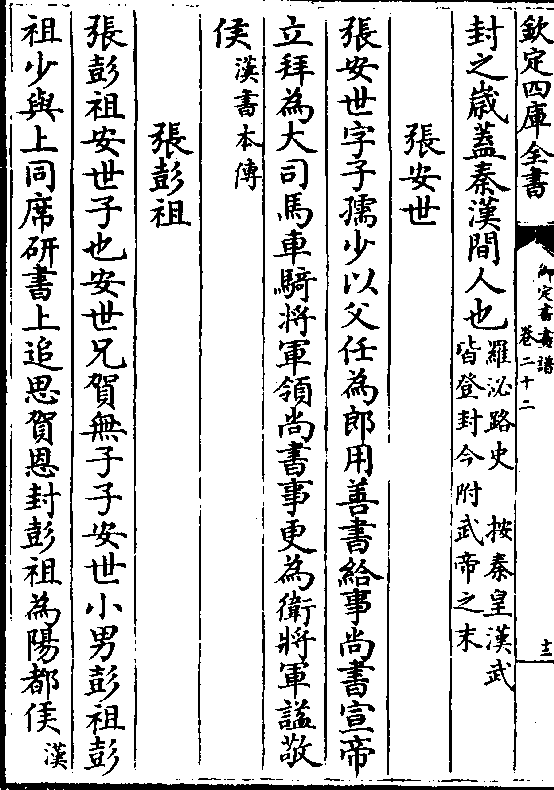 欽定四庫全書
御定書畫譜
卷二十二
十三
封之嵗蓋秦漢間人也羅泌路史　按秦皇漢武
皆登封今附武帝之末
張安世
張安世字子孺少以父任為郎用善書給事尚書宣帝
立拜為大司馬車騎將軍領尚書事更為衛將軍諡敬
侯漢書本傳
張彭祖
張彭祖安世子也安世兄賀無子子安世小男彭祖彭
祖少與上同席研書上追思賀恩封彭祖為陽都侯漢